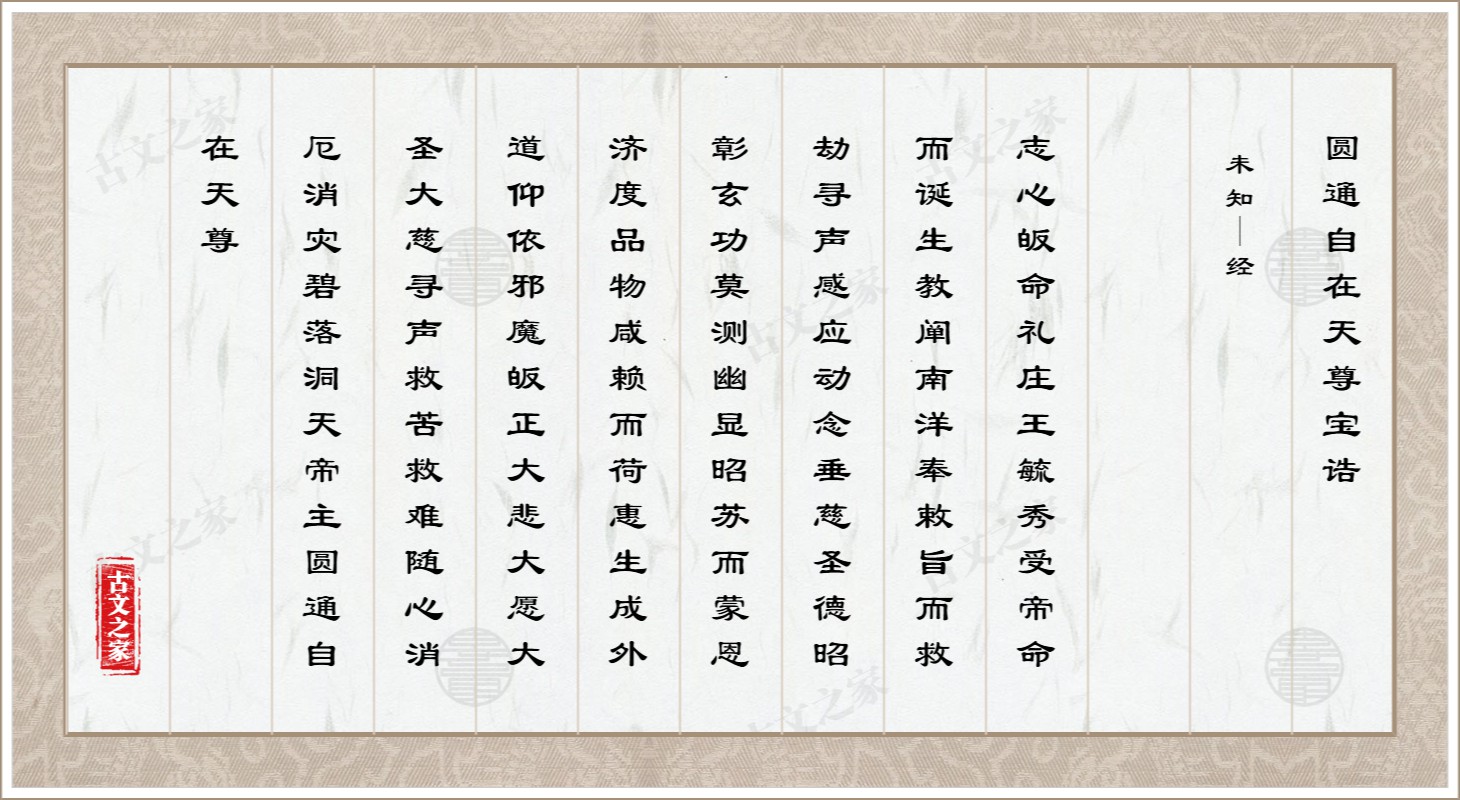 圆通自在天尊宝诰
未知｜经
志心皈命礼庄王毓秀受帝命
而诞生教阐南洋奉敕旨而救
劫寻声感应动念垂慈圣德昭
彰玄功莫测幽显昭苏而蒙恩
济度品物咸赖而荷惠生成外
道仰依邪魔皈正大悲大愿大
圣大慈寻声救苦救难随心消
厄消灾碧落洞天帝主圆通自
在天尊
古文之家